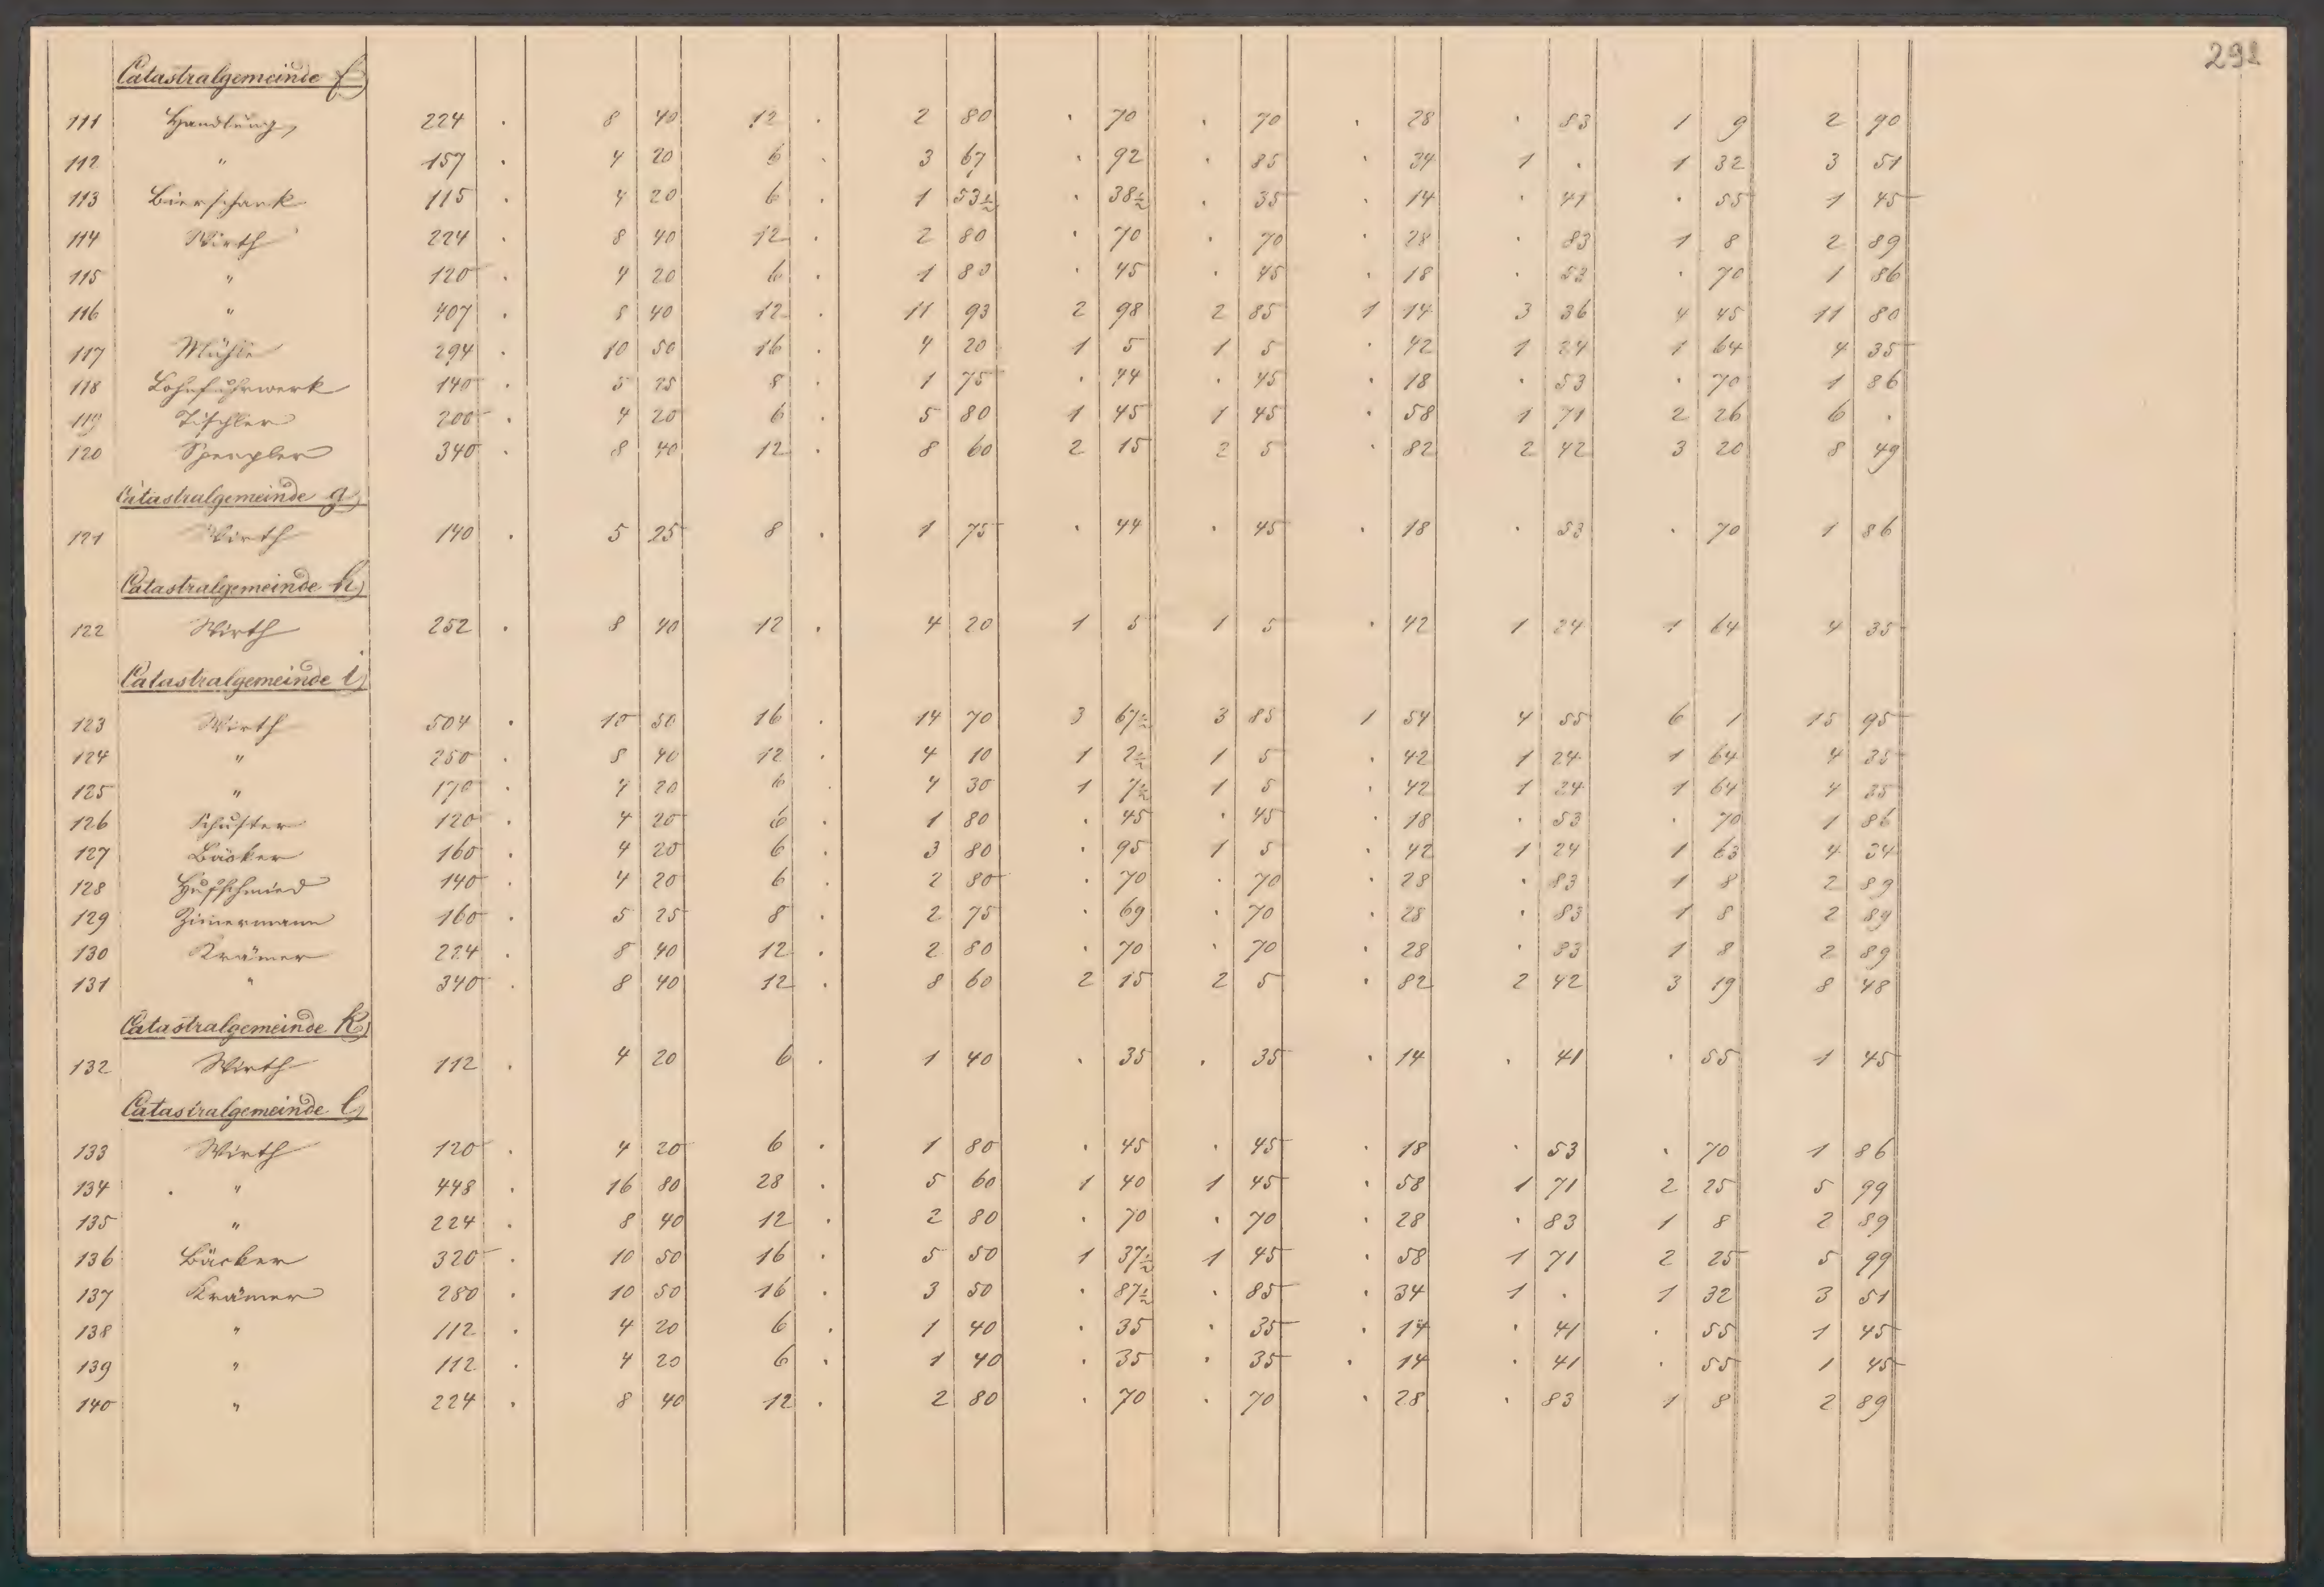 291
Catastralgemeinde f)
111 Handlung 224 . 8 40 12 . 2 80 . 70 . 70 . 28 . 83 1 9 2 90
112 " 157 . 4 20 6 . 3 67 . 92 . 85 . 34 1 . 1 32 3 51
113 Bierschank 115 . 4 20 6 . 1 53½ . 38½ . 35 . 14 . 41 . 55 1 45
114 Wirth 224 . 8 40 12 . 2 80 . 70 . 70 . 28 . 83 1 8 2 89
115 " 120 . 4 20 6 . 1 80 . 45 . 45 . 18 . 53 . 70 1 86
116 " 407 . 8 40 12 . 11 93 2 98 2 85 1 14 3 36 4 45 11 80
117 Mühle 294 . 10 50 16 . 4 20 1 5 1 5 . 42 1 24 1 64 4 35
118 Lohnfuhrwerk 140 . 5 25 8 . 1 75 . 44 . 45 . 18 . 53 . 70 1 86
119 Tischler 200 . 4 20 6 . 5 80 1 45 1 45 . 58 1 71 2 26 6 .
120 Spengler 340 . 8 40 12 . 8 60 2 15 2 5 . 82 2 42 3 20 8 49
Catastralgemeinde g)
121 Wirth 140 . 5 25 8 . 1 75 . 44 . 45 . 18 . 53 . 70 1 86
Catastralgemeinde h)
122 Wirth 252 . 8 40 12 . 4 20 1 5 1 5 . 42 1 24 1 64 4 35
Catastralgemeinde i)
123 Wirth 504 . 10 50 16 . 14 70 3 67½ 3 85 1 54 4 55 6 1 15 95
124 " 250 . 8 40 12 . 4 10 1 2½ 1 5 . 42 1 24 1 64 4 35
125 " 170 . 4 20 6 . 4 30 1 7½ 1 5 . 42 1 24 1 64 4 35
126 Schuster 120 . 4 20 6 . 1 80 . 45 . 45 . 18 . 53 . 70 1 86
127 Bäcker 160 . 4 20 6 . 3 80 . 95 1 5 . 42 1 24 1 63 4 34
128 Hufschmied 140 . 4 20 6 . 2 80 . 70 . 70 . 28 . 83 1 8 2 89
129 Zim̄ermann 160 . 5 25 8 . 2 75 . 69 . 70 . 28 . 83 1 8 2 89
130 Krämer 224 . 8 40 12 . 2 80 . 70 . 70 . 28 . 83 1 8 2 89
131 " 340 . 8 40 12 . 8 60 2 15 2 5 . 82 2 42 3 19 8 48
Catastralgemeinde k)
132 Wirth 112 . 4 20 6 . 1 40 . 35 . 35 . 14 . 41 . 55 1 45
Catastralgemeinde l)
133 Wirth 120 . 4 20 6 . 1 80 . 45 . 45 . 18 . 53 . 70 1 86
134 " 448 . 16 80 28 . 5 60 1 40 1 45 . 58 1 71 2 25 5 99
135 " 224 . 8 40 12 . 2 80 . 70 . 70 . 28 . 83 1 8 2 89
136 Bäcker 320 . 10 50 16 . 5 50 1 37½ 1 45 . 58 1 71 2 25 5 99
137 Krämer 280 . 10 50 16 . 3 50 . 87½ . 85 . 34 1 . 1 32 3 51
138 " 112 . 4 20 6 . 1 40 . 35 . 35 . 14 . 41 . 55 1 45
139 " 112 . 4 20 6 . 1 40 . 35 . 35 . 14 . 41 . 55 1 45
140 " 224 . 8 40 12 . 2 80 . 70 . 70 . 28 . 83 1 8 2 89